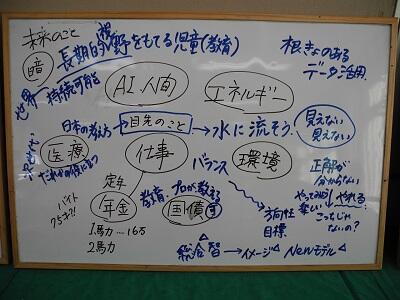 未来のこと
暗
長期的視野をもてる児童(教育)
根きょのある
データ活用
世界
持続可能
AI.人間
エネルギー
日本の考え方
目先のこと
→水に流そう.
見えない
見えない
医療
仕事
環境
バランス
正解が
分からない
定年
年金
教育.プロが教える
国債
バイト
1馬力…16万
2馬力
方向性
目標
こっちじゃ
ないの?
総合智→イメージ→Newモデル